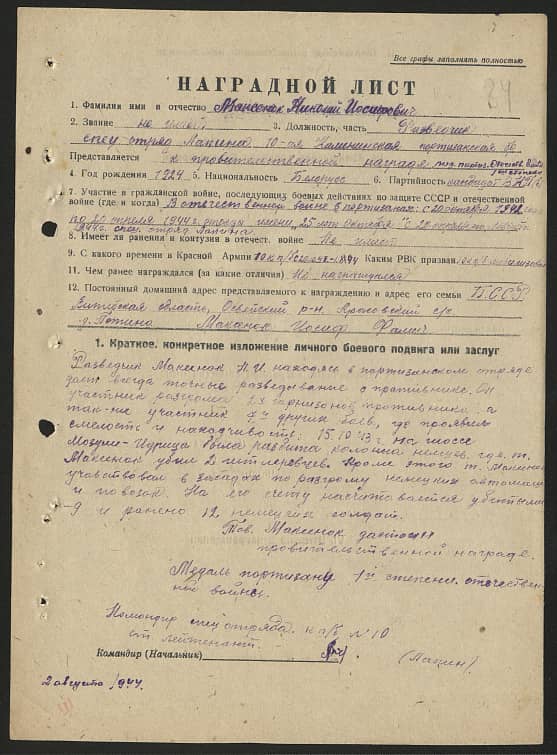 24
Все графы заполнять полностью
НАГРАДНОЙ ЛИСТ
1. Фамилия имя и отчество Максенок Николай Иосифович
2. Звание не имеет, 3. Должность, часть Разведчик
спец отряд Лапина 10-ая Калининская партизанская бр
Представляется к правительственной награде
4. Год рождения 1924 5. Национальность Белорус 6. Партийность кандидат
7. Участие в гражданской войне, последующих боевых действиях по защите СССР и отечественной
войне (где и когда) В отечественной войне в партизанах: с 20 октября 1942
по 20 апреля 1944г. имени 25 лет Октября с 20
1944г. спец. отряд Лапина.
8. Имеет ли ранения и контузии в отечест. войне Не имеет
9. С какого времени в Красной Армии Каким РВК призван
11. Чем ранее награждался (за какие отличия) Не награждался
12. Постоянный домашний адрес представляемого к награждению и адрес его семьи БССР
Витебская область, Освейский р-н Кроповский с/с
д. Максенок Иосиф
1. Краткое, конкретное изложение личного боевого подвига или заслуг
Разведчик Максенок Н.И. находясь в партизанском отряде
дает всегда точно разведывание о противнике. Он
участник разгрома гарнизонов противника, а
так-же участник 4х других боев, где проявлял
смелость и находчивость: 15.10.43 г. на шоссе
Идрица была разбита колонна немцев, где т.
Максенок убил 2 гитлеровцев. Кроме этого т. Максенок
участвовал в засадах по разгрому немецких автомашин
и повозок. На его счету насчитывается убитыми
-9 и ранено 12 немецких солдат.
Тов. Максенок достоин
правительственной награде.
Медаль партизану 1й степени отечествен-
ной войны.
Командир спец отряда N 10
ст лейтенант.
Командир (Начальник) (Лапин)
2 августа 1944